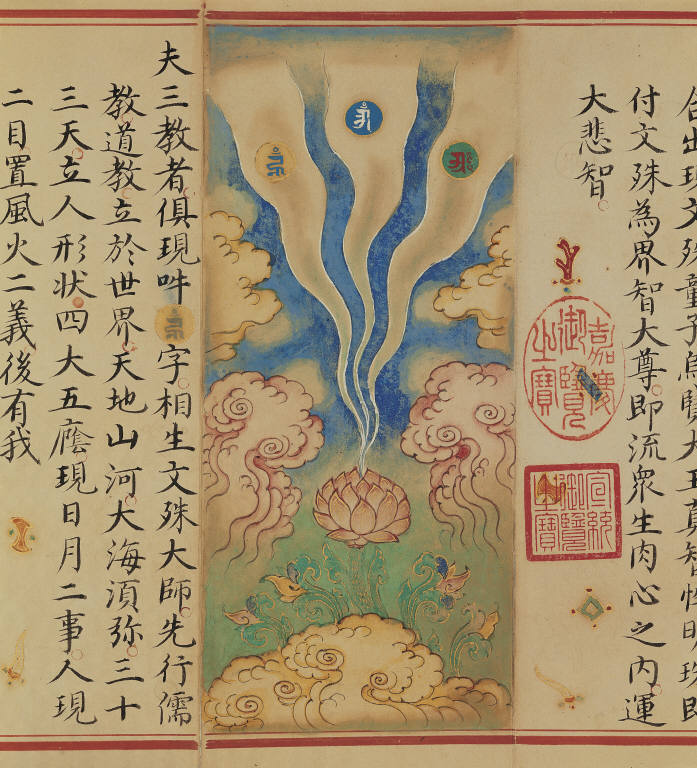 出現文殊童子 大五真智性明珠即
付文殊為界智大尊即流衆生肉心之内運
大悲智
嘉慶御覽之寶
宣統御覽之寶
夫三教者俱現吽字相生文殊大師先行儒
教道教立於世界天地山河大海湏弥三十
三天立人形状四大五廕現日月二事人現
二目置風火二義後有我